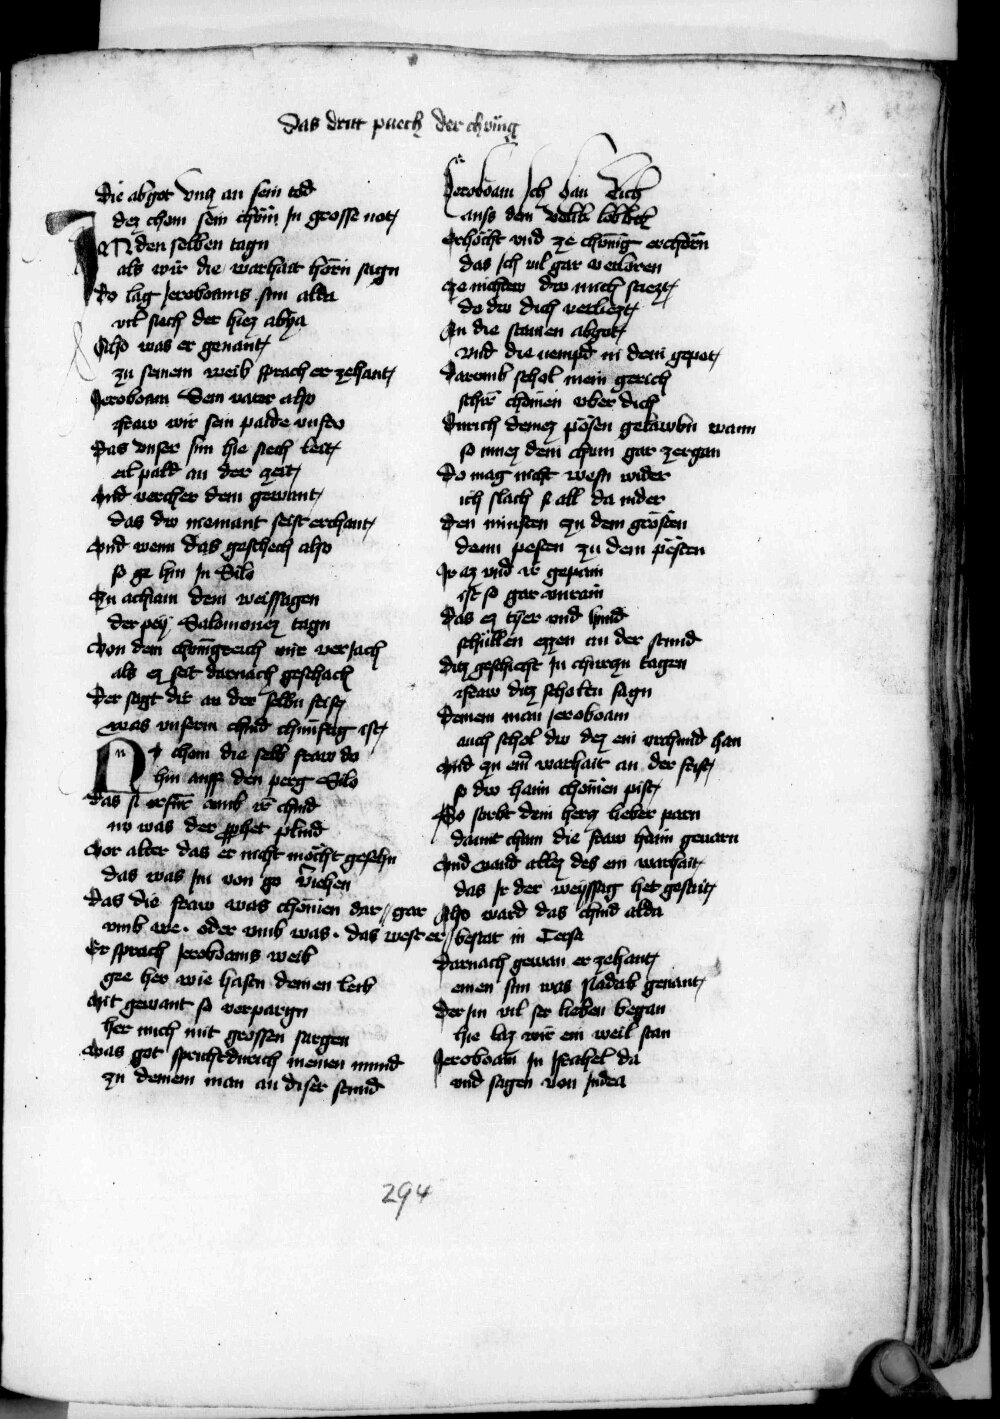 Das dritt puech der chünig
Die abgot vncz an sein tod
dez chom sein chünn in grosse not
IN den selben tagn
als wir die warhait hörn sagn
do lag Jeroboams sun alda
vil siech der hiez abya
Also was er genant
zu seinem weib sprach er zehant
Jeroboam dem vater also
fraw wir sein palde vnfro
Das vnser sun hie siech leit
eil pald an der zeit
Vnd vercher dein gewant
das dw niemant selst erchant
Vnd wenn das geschech also
so ge hin in Silo
Zu achiam dem weissagen
der pey Salomonez tagn
Von dem chonigreich mir veriach
als ez seit darnach geschach
Der sagt dir an der selbn frist
was vnserm chind chünftig ist
Nv chom die selb fraw do
hin auff den perg Silo
Das si erfür vmb ir chind
nv was der prophet plind
Vor alter das er nicht möcht gesehn
das was im von go
Das die fraw was chömen dar gar
vmb we. oder vmb was. das west er
Er sprach Jeroboams weib
gee her wie hastu deinen leib
Mit gewant so verporgn
her mich mit grossen sorgen
Was got spricht durich meinen mund
zu deinem man an diser stund
Jeroboam Ich han dich
auss dem volk
Erhöcht vnd ze chönig erchorn
das ich vil gar verloren
Ze nichtew dw mich seczt
do dw dich verliezt
An die stainen abgot
vnd die nempd in dein gepot
Daromb schol mein gerich
schir chömen vber dich
Durich deinez pösen gelawbn wann
so muez dein chunn gar zergan
Do mag nicht wesn wider
ich slach si all da nider
Den minsten zu dem grösten
denn pesten zu dem pösten
Ir az vnd ir gepain
ist so gar vnrain
Das ez tyer vnd hund
schüllen ezzen an der stund
Dicz geschicht in churczn tagen
fraw dicz scholtu sagn
Deinem man Jeroboam
auch schol dw dez ein vrchund han
Vnd zu einer warhait an der frist
so dw haim chömen pist
So stirbt dein herz lieber parn
damit cham die fraw haim gevarn
Vnd vand allez des ein warhait
das Ir der weyssag het geseit
Also ward das chind alda
bestat in Tersa
Darnach gewan er zehant
einen sun was Nadab genant
Der im vil ser lieben began
hie laz wir ein weil stan
Jeroboam in Israhel da
vnd sagen von Judea
294